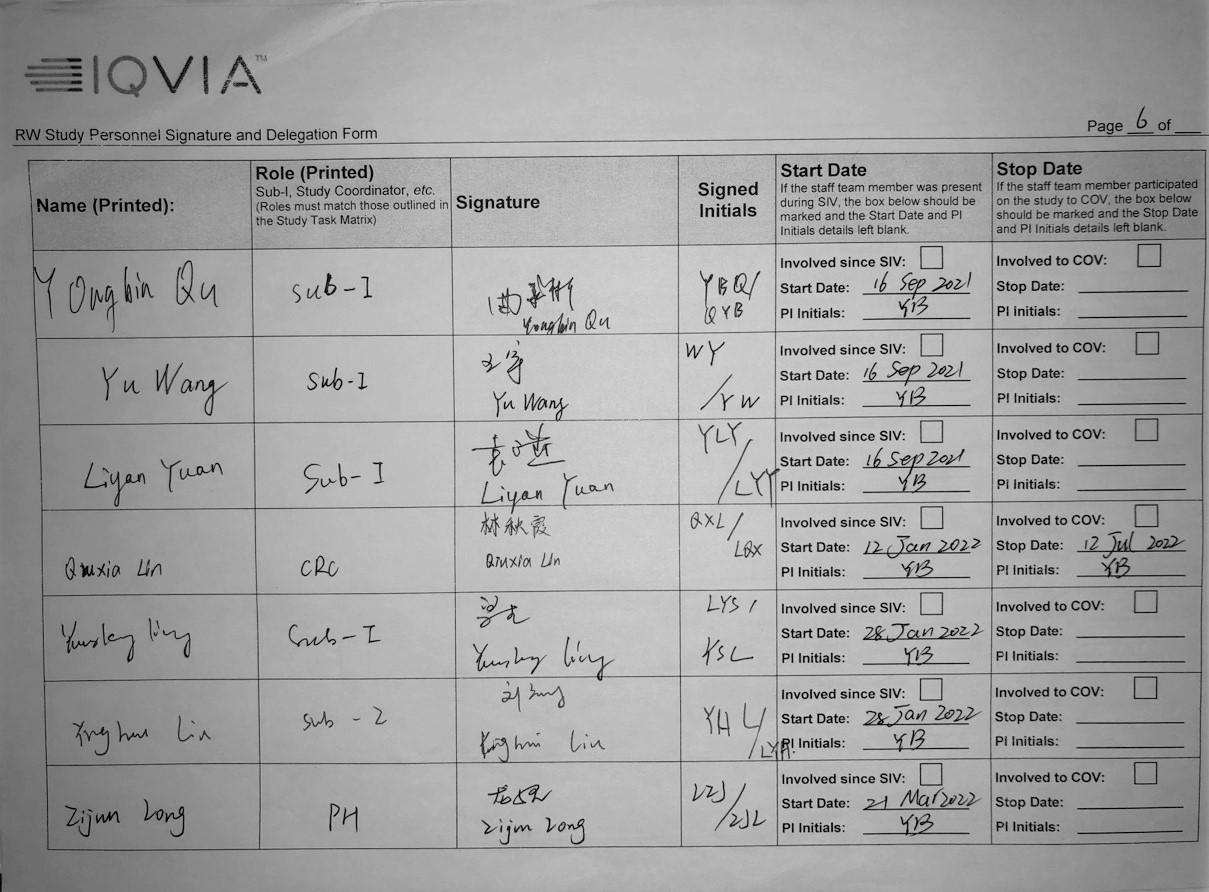 IQVIA™
RW Study Personnel Signature and Delegation Form
Page 6 of
Name (Printed):
Role (Printed)
Sub-I, Study Coordinator, etc.
(Roles must match those outlined in
the Study Task Matrix)
Signature
Signed
Initials
Start Date
If the staff team member was present
during SIV, the box below should be
marked and the Start Date and PI
Initials details left blank.
Stop Date
If the staff team member participated
on the study to COV, the box below
should be marked and the Stop Date
and PI Initials details left blank.
Yongbin Qu
Sub-I
Yongbin Qu
YBQ/
QYB
Involved since SIV:
Start Date: 16 Sep 2021
PI Initials: YB
Involved to COV:
Stop Date:
PI Initials:
Yu Wang
Sub-I
Yu Wang
WY
/YW
Involved since SIV:
Start Date: 16 Sep 2021
PI Initials: YB
Involved to COV:
Stop Date:
PI Initials:
Liyan Yuan
Sub-I
Liyan Yuan
YLY/
/LYY
Involved since SIV:
Start Date: 16 Sep 2021
PI Initials: YB
Involved to COV:
Stop Date:
PI Initials:
Qiuxia Lin
CRC
林秋霞
Qiuxia Lin
QXL/
LQX
Involved since SIV:
Start Date: 12 Jan 2022
PI Initials: YB
Involved to COV:
Stop Date: 12 Jul 2022
PI Initials: YB
Sub-I
LYS/
YSL
Involved since SIV:
Start Date: 28 Jan 2022
PI Initials: YB
Involved to COV:
Stop Date:
PI Initials:
Sub-I
YHL
/LYH
Involved since SIV:
Start Date: 28 Jan 2022
PI Initials: YB
Involved to COV:
Stop Date:
PI Initials:
Zijun Long
PH
Zijun Long
LZJ
/ZJL
Involved since SIV:
Start Date: 21 Mar 2022
PI Initials: YB
Involved to COV:
Stop Date:
PI Initials: